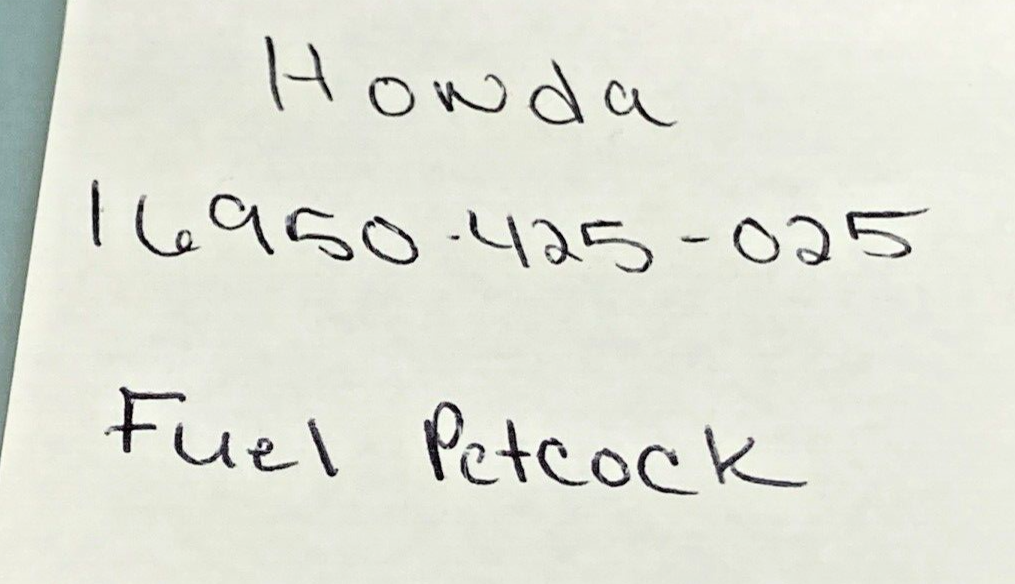 Honda
16950-425-025
Fuel Petcock